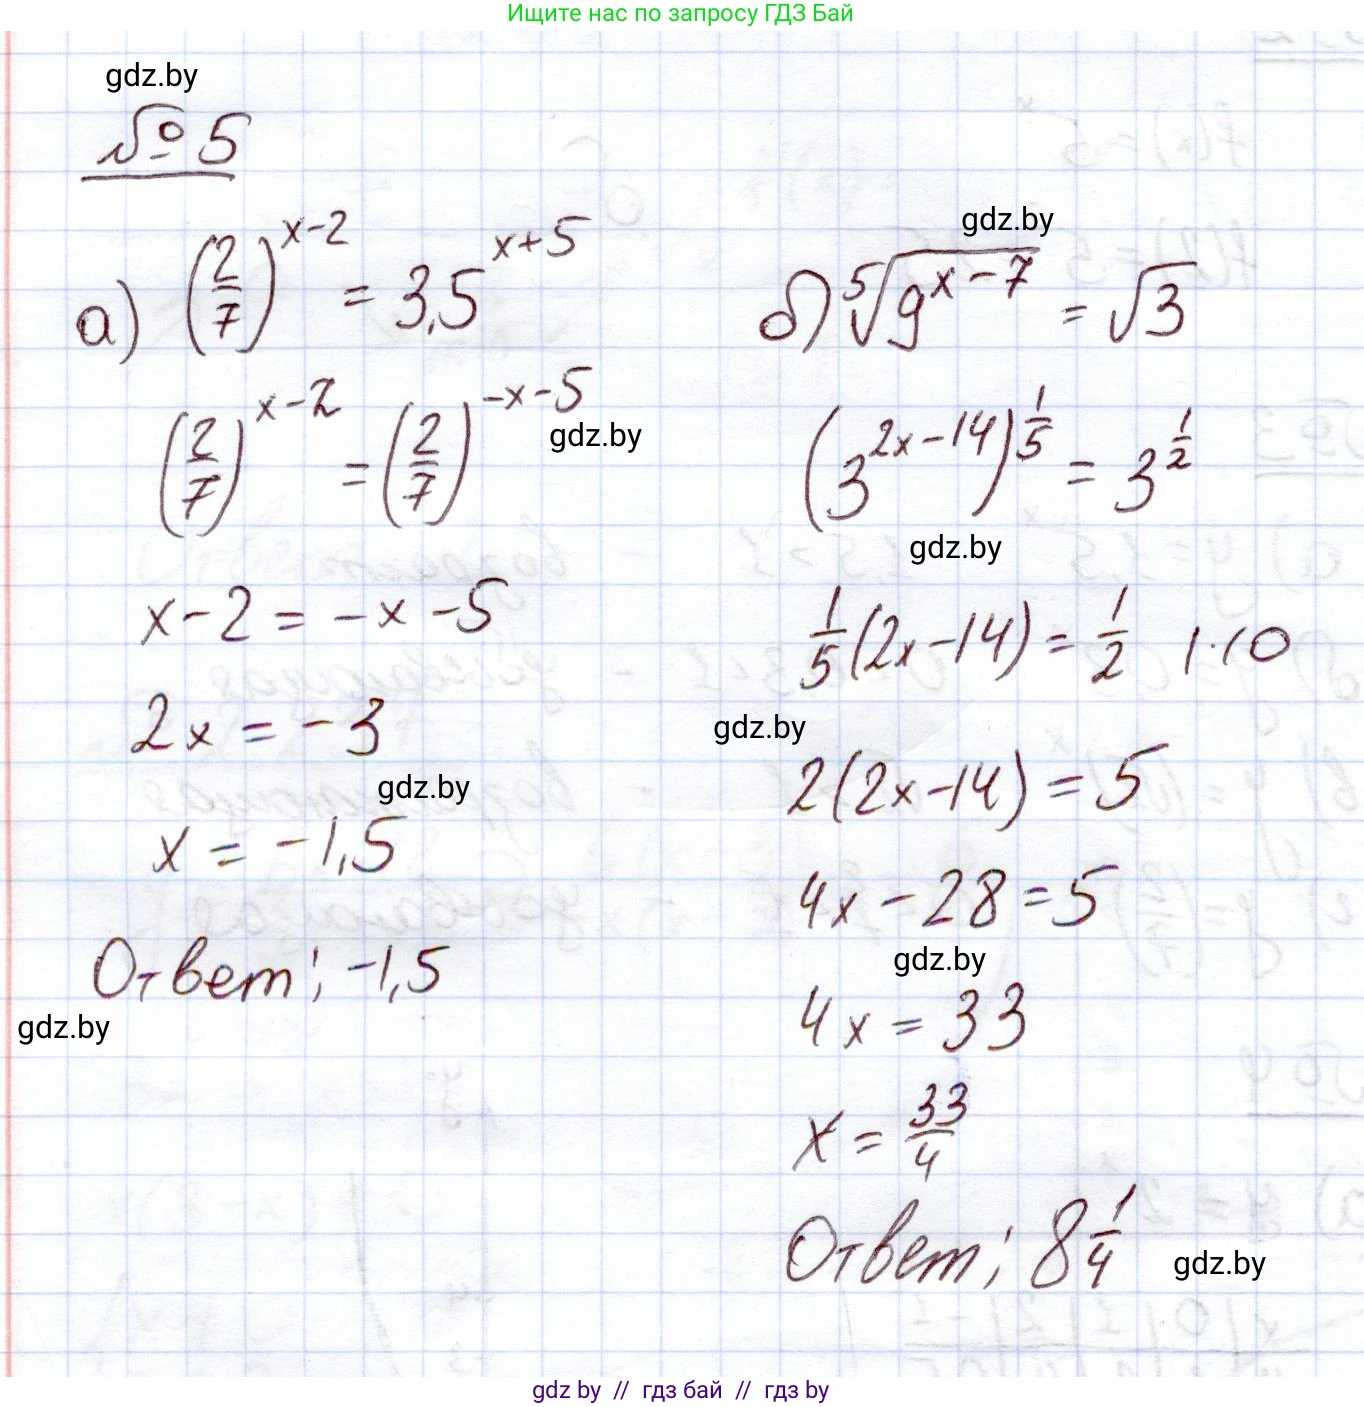 Ищите нас по запросу ГДЗ Бай
gdz.by
№ 5
а) (2/7)^(x-2) = 3,5^(x+5)
(2/7)^(x-2) = (2/7)^(-x-5)
gdz.by
x-2 = -x-5
2x = -3
gdz.by
x = -1,5
Ответ: -1,5
gdz.by
gdz.by
б) ⁵√(9^(x-7)) = √3
(3^(2x-14))^(1/5) = 3^(1/2)
gdz.by
1/5(2x-14) = 1/2 |·10
gdz.by
2(2x-14) = 5
4x-28=5
gdz.by
4x = 33
x = 33/4
Ответ: 8 1/4
gdz.by
gdz by // гдз бай // gdz by